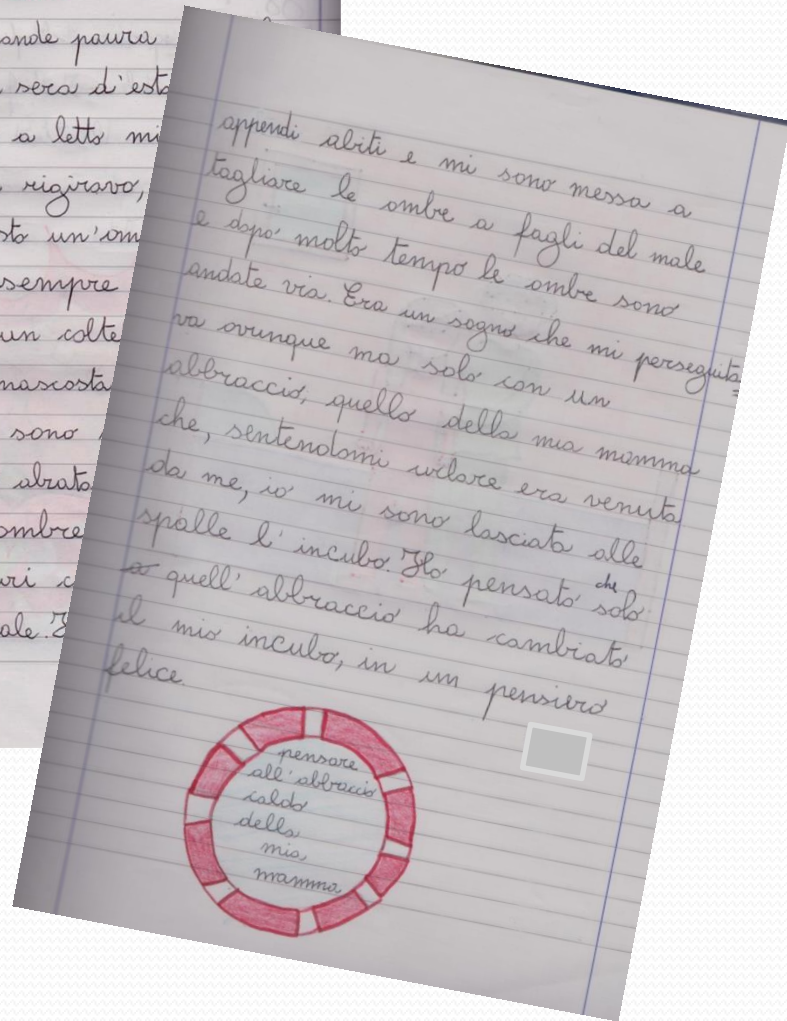 ande paura
sera d'esta
a letto mi
rigiravo,
sto un'om
sempre
un colte
nascosta
sono
alzato
ombre
ri c
ale. H
appendi abiti e mi sono messa a
tagliare le ombre a fagli del male
e dopo molto tempo le ombre sono
andate via. Era un sogno che mi perseguita=
va ovunque ma solo con un
abbraccio, quello della mia mamma
che, sentendomi urlare era venuta
da me, io mi sono lasciata alle
spalle l'incubo. Ho pensato che solo
quell'abbraccio ha cambiato
il mio incubo, in un pensiero
felice.
pensare
all'abbraccio
caldo
della
mia
mamma